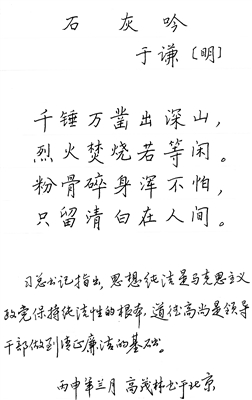 石灰吟
于谦〔明〕
千锤万凿出深山，
烈火焚烧若等闲。
粉骨碎身浑不怕，
只留清白在人间。
习总书记指出，思想纯洁是马克思主义
政党保持纯洁性的根本，道德高尚是领导
干部做到清正廉洁的基础。
丙申年三月 高茂林书于北京